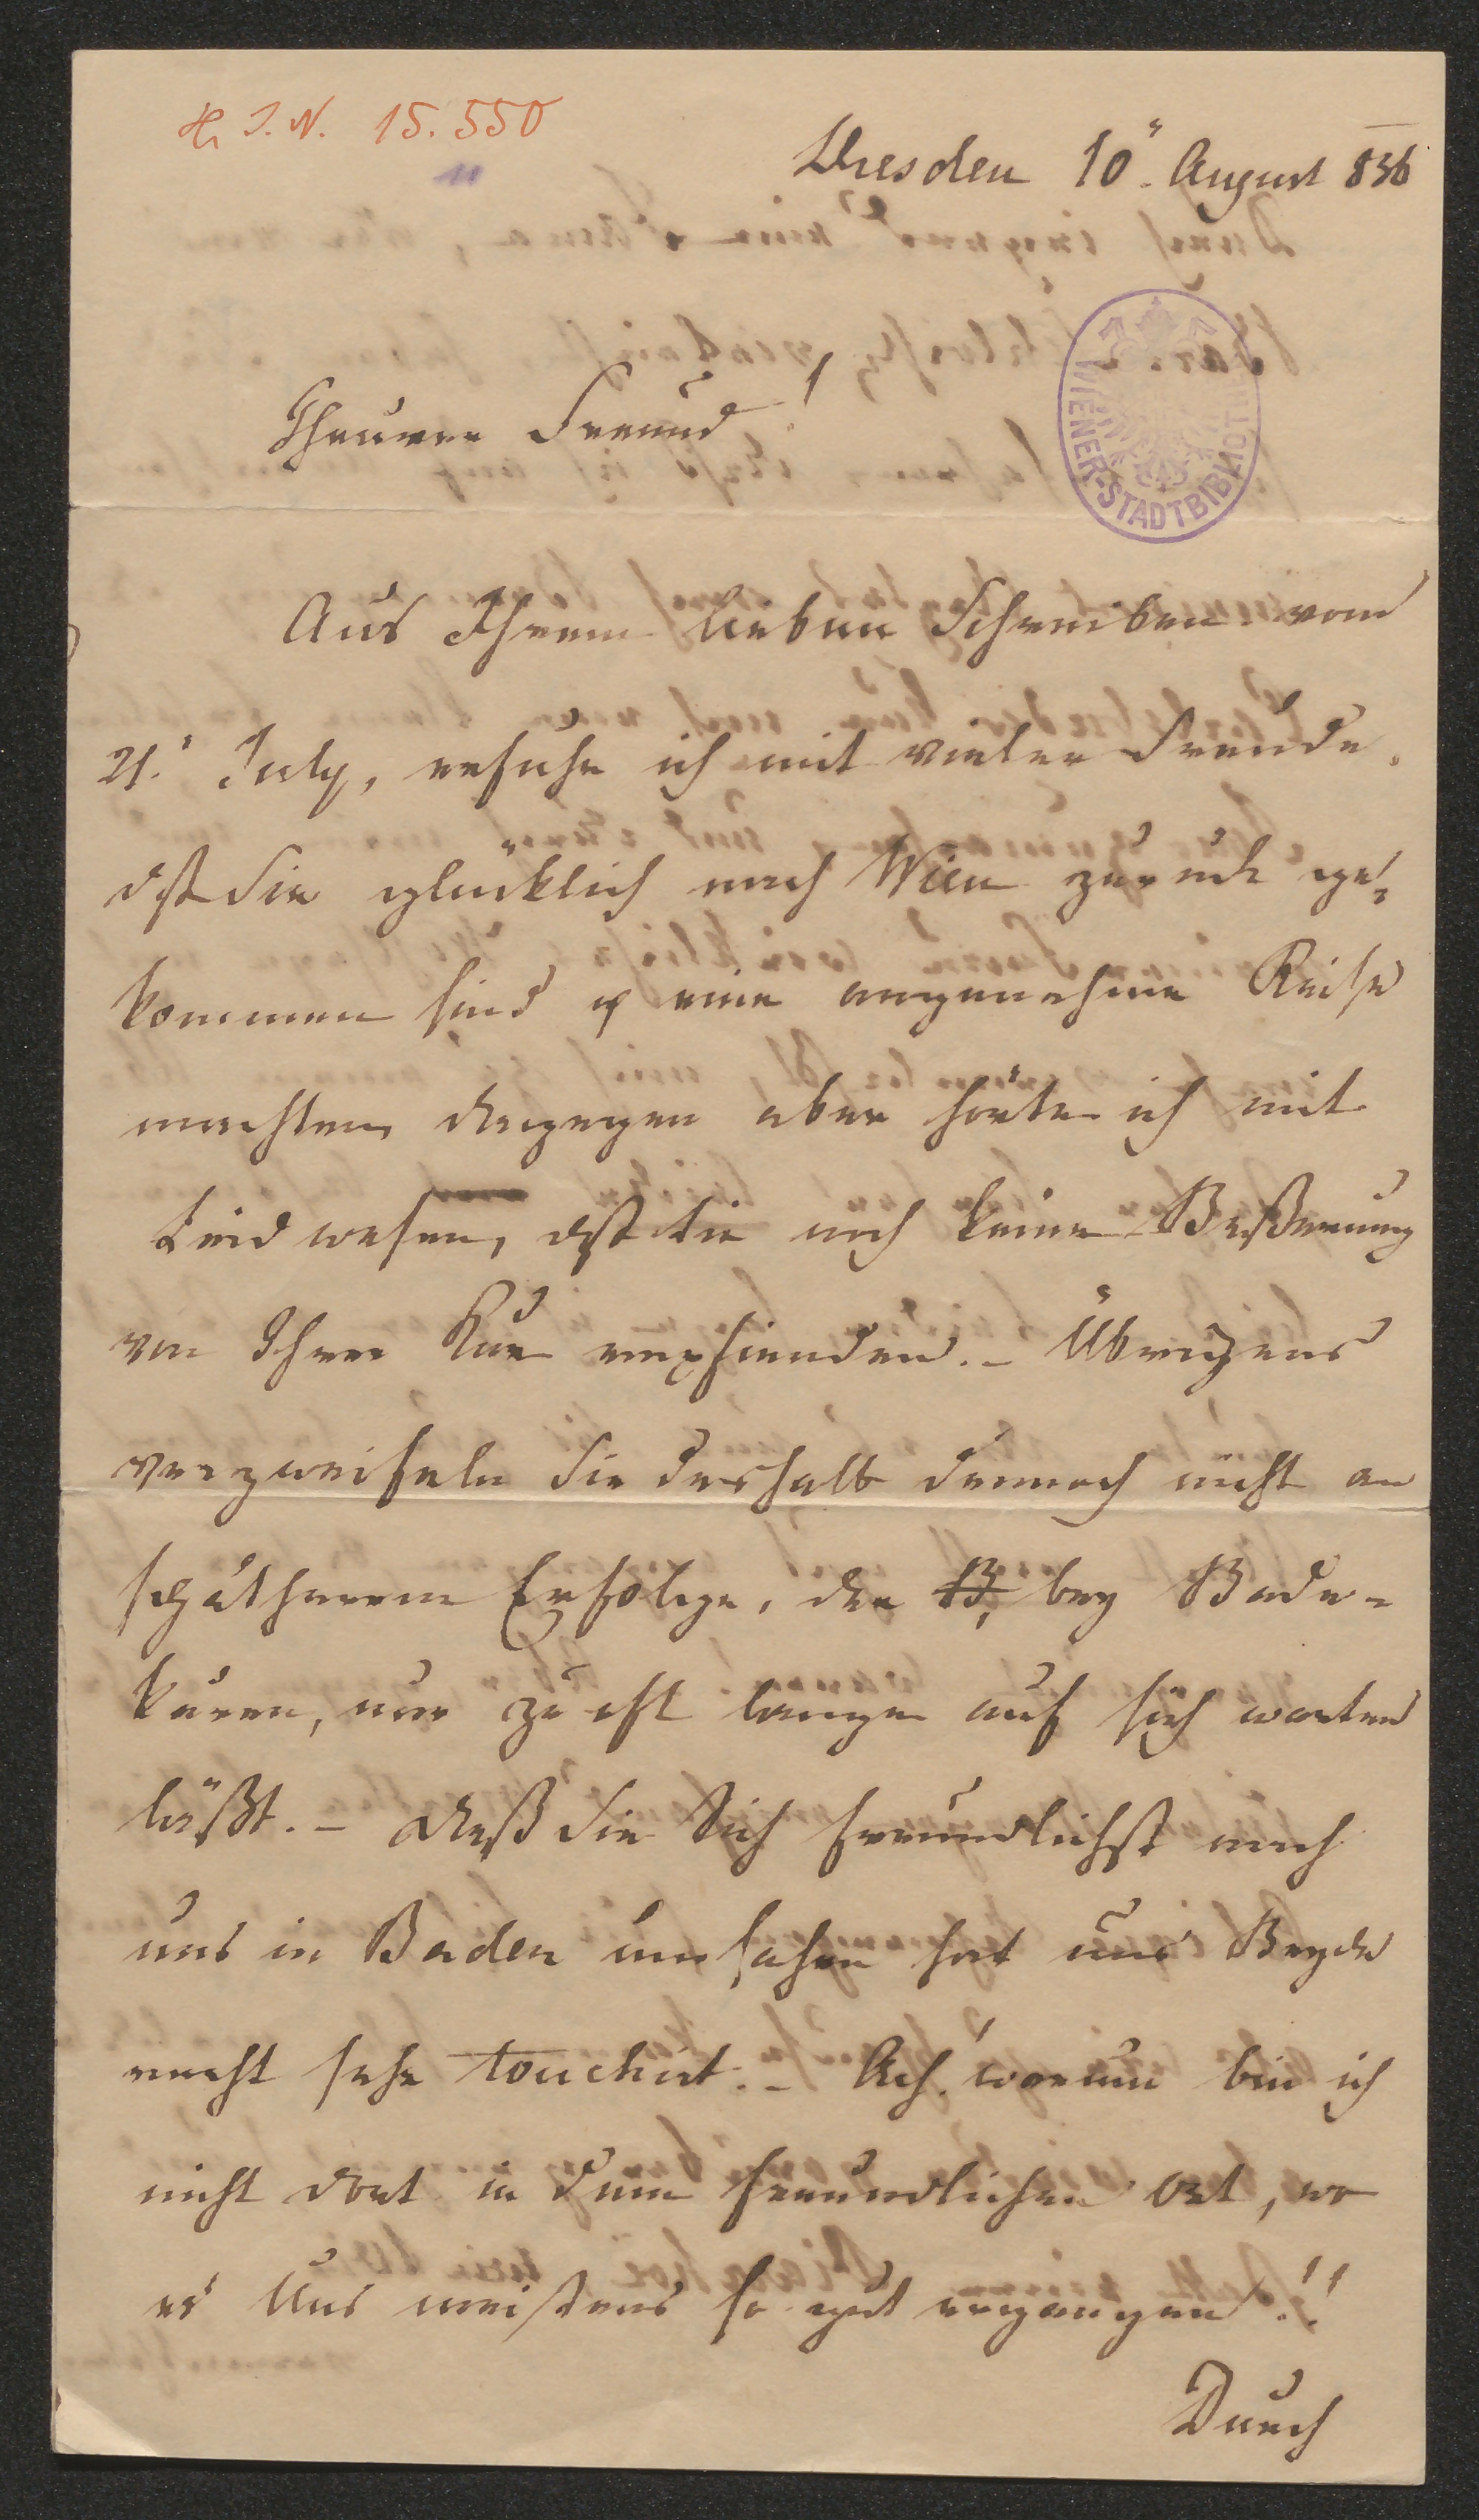 H. I. N. 15.550
Dresden 10". August 836
WIENER-STADTBIBLIOT
Theurer Freund!
Aus Ihrem lieben Schreiben vom
21.' July, erfuhr ich mit vieler Freude,
dß Sie glücklich nach Wien zurück ge¬
kommen sind & eine angenehme Reise
machten, dagegen aber hörte ich mit
Leidwesen, dß Sie noch keine Beßerung
von Ihrer Kur empfienden. – Übrigens
verzweifeln Sie deshalb dennoch nicht an
späthrem Erfolge, der B, bey Bade-
kuren, nur zu oft lange auf sich warten
läßt. – Daß Sie Sich freundlichst nach
uns in Baden umsahen hat uns Beyde
recht sehr touchirt. – Ach! warum bin ich
nicht dort in dem freundlichen Ort, wo
es Uns meistens so gut ergangen!!
Durch